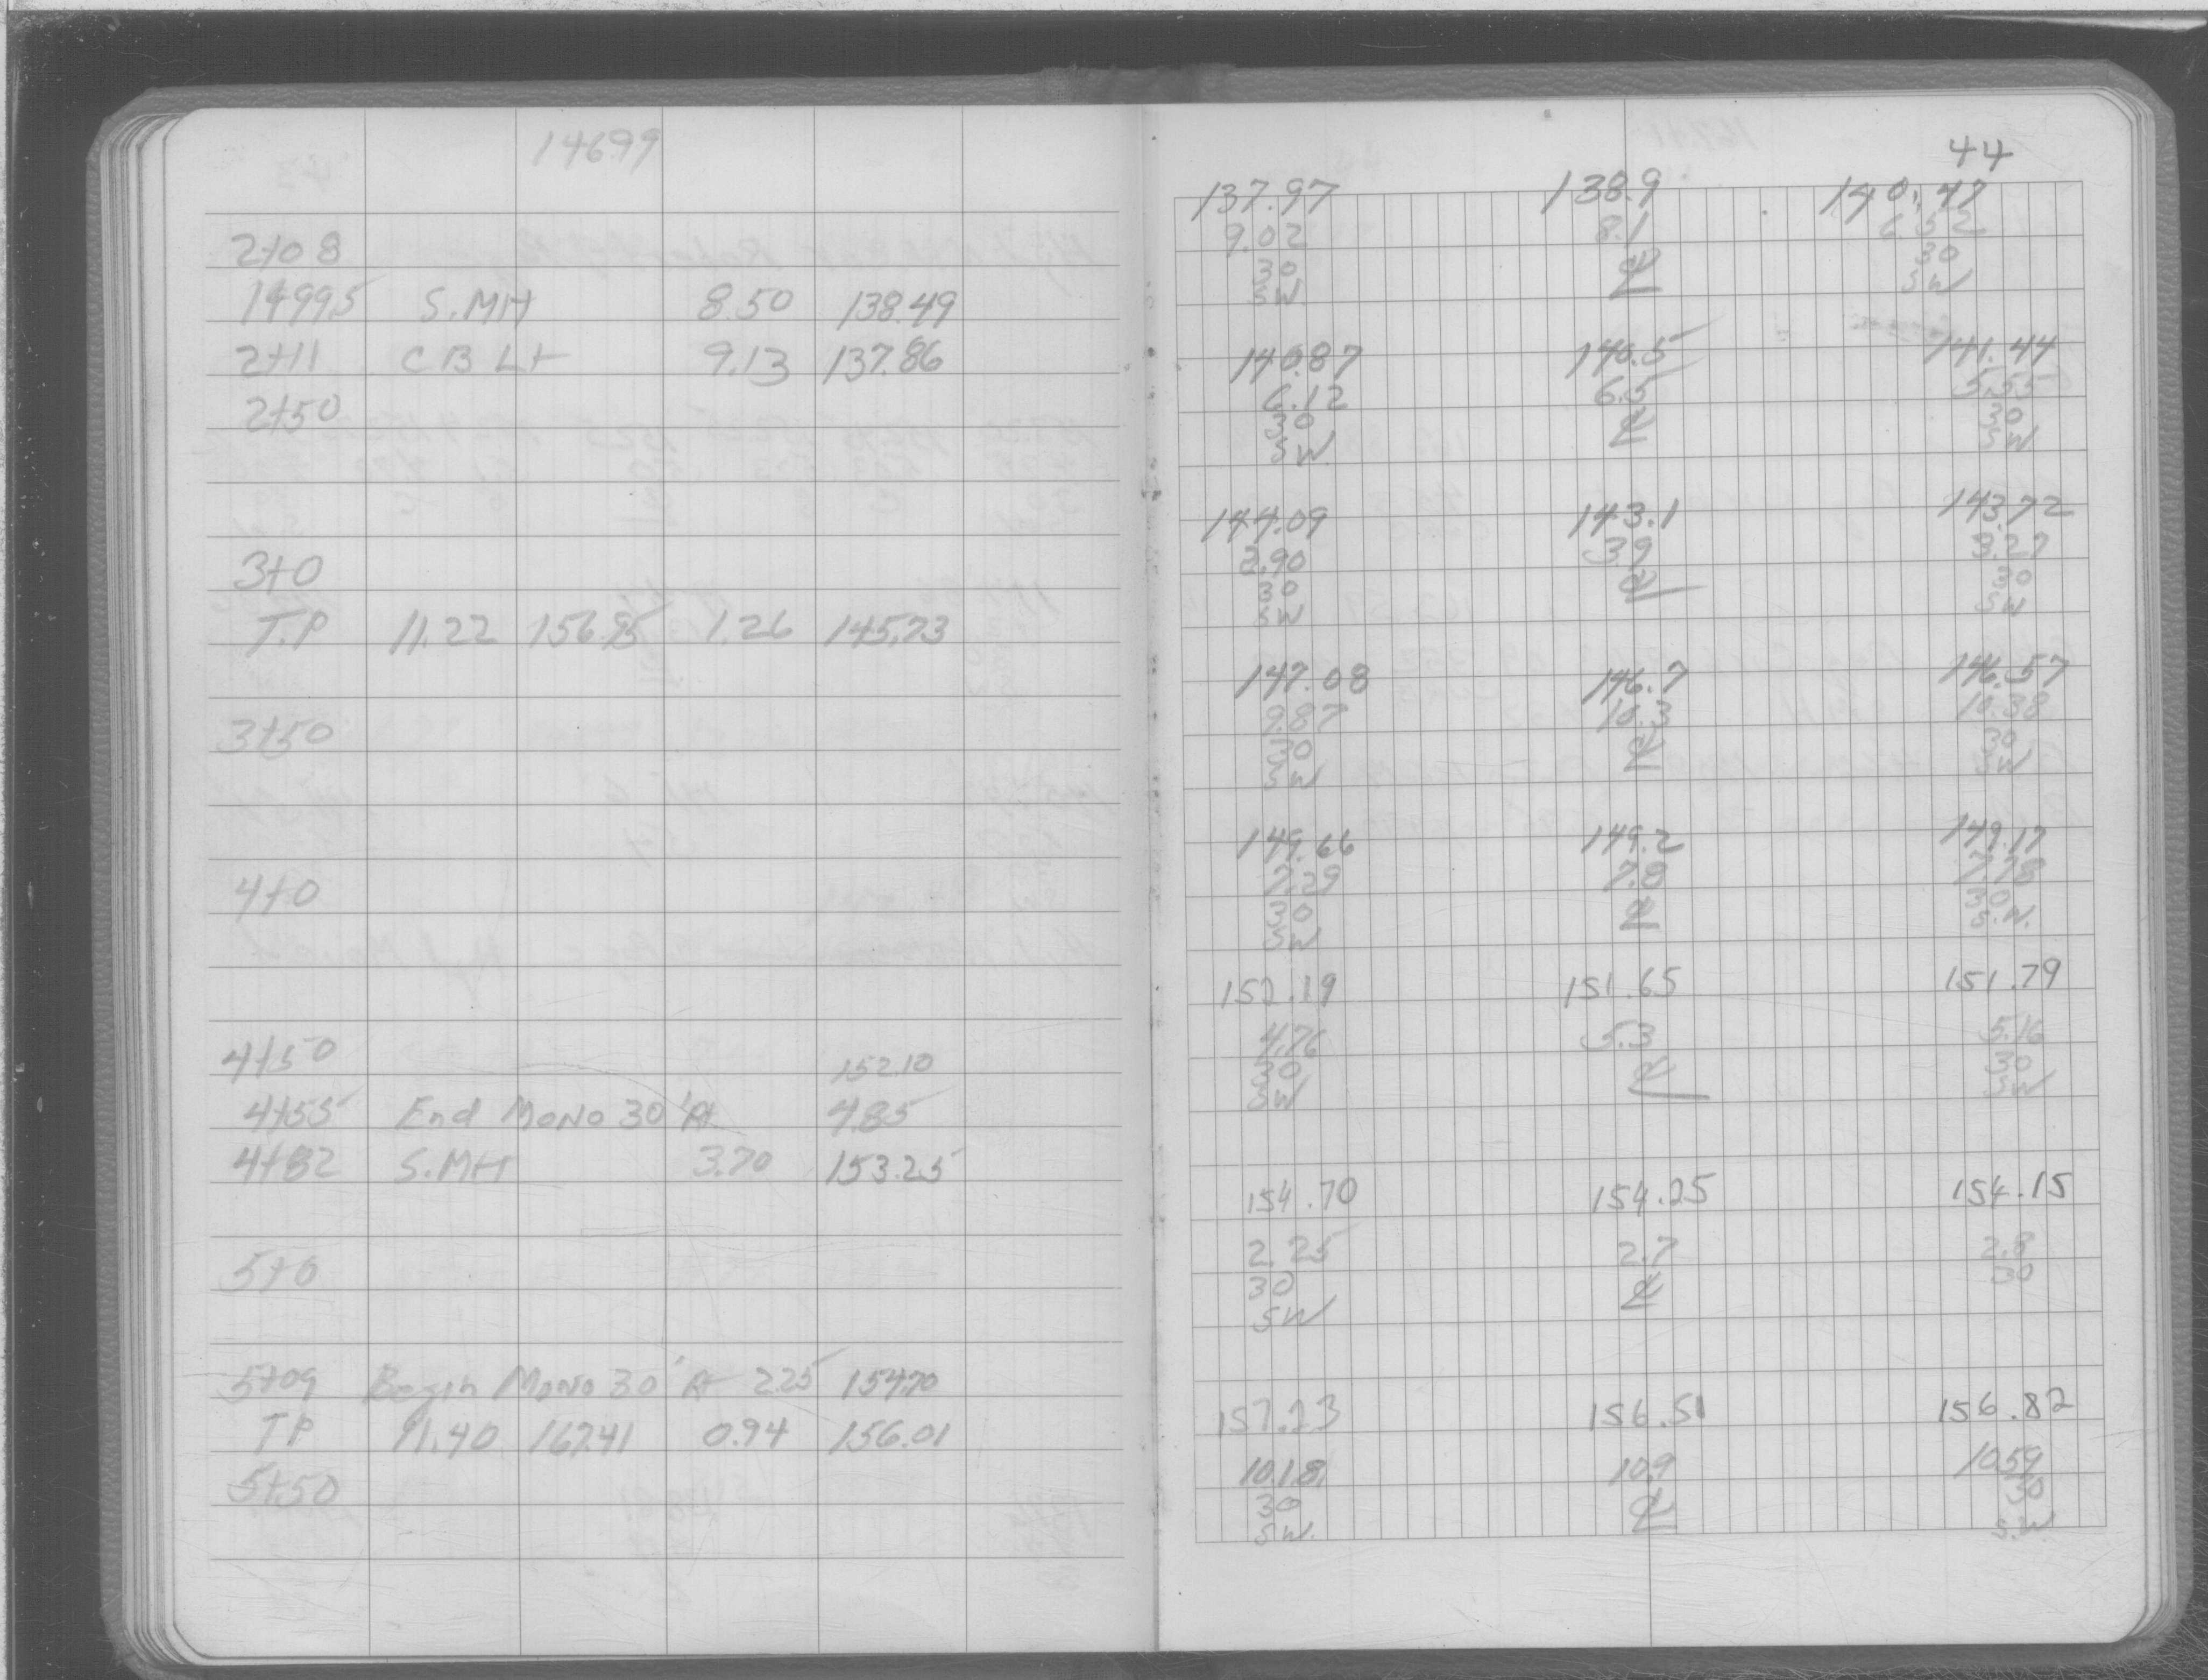 146.99
2+08
1+99.5 S.MH 8.50 138.49
2+11 CB Lt 9.13 137.86
2+50
3+0
T.P 11.22 156.95 1.26 145.73
3+50
4+0
4+50 152.10
4+55 End Mono 30' Rt 4.85
4+82 S.MH 3.70 153.25
5+0
5+09 Begin Mono 30' Rt 2.25 154.70
TP 11.40 167.41 0.94 156.01
5+50
44
137.97 138.9 140.47
9.02 8.1 6.52
30 ℄ 30
SW SW
140.87 140.5 141.44
6.12 6.5 5.55
30 ℄ 30
SW SW
144.09 143.1 143.72
2.90 3.9 3.27
30 ℄ 30
SW SW
147.08 146.7 146.57
9.87 10.3 10.38
30 ℄ 30
SW SW
149.66 149.2 149.17
7.29 7.8 7.78
30 ℄ 30
SW S.W.
152.19 151.65 151.79
4.76 5.3 5.16
30 ℄ 30
SW SW
154.70 154.25 154.15
2.25 2.7 2.8
30 ℄ 30
SW
157.23 156.51 156.82
10.18 10.9 10.59
30 ℄ 30
SW. S.W.